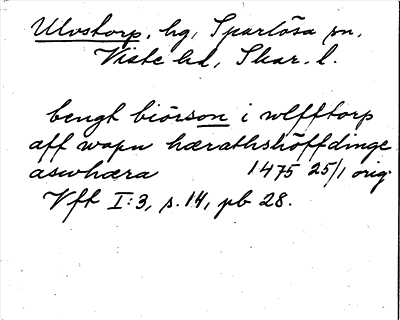 Ulvstorp, hg, Sparlösa sn,
Viste hd, Skar. l.
bengt biörson i wlfftorp
aff wapn hærathshöffdinge
aswhæra 1475 25/1 orig.
Vft I:3, s. 14, pb 28.